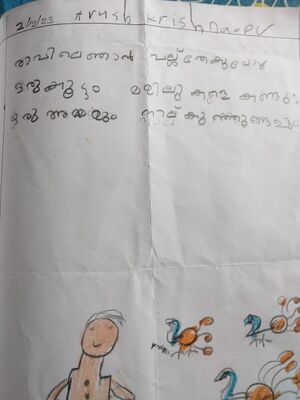 2/12/23 Arush Krishna.P.V
രാവിലെ ഞാൻ പല്ല് തേക്കുമ്പോൾ
ഒരു കൂട്ടം മയിലുകളെ കണ്ടു.
ഒരു അമ്മയും കുഞ്ഞുങ്ങളും